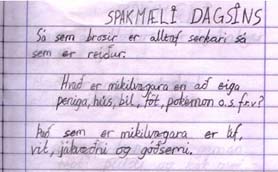 SPAKMÆLI DAGSINS
Sá sem brosir er alltaf sterkari sá
sem er reiður.
Hvað er mikilvægara en að eiga
peniga, hús, bíl, föt, pokemon o.s.fr.v?
Það sem er mikilvægara er líf,
vit, jákvæðni og góðsemi.